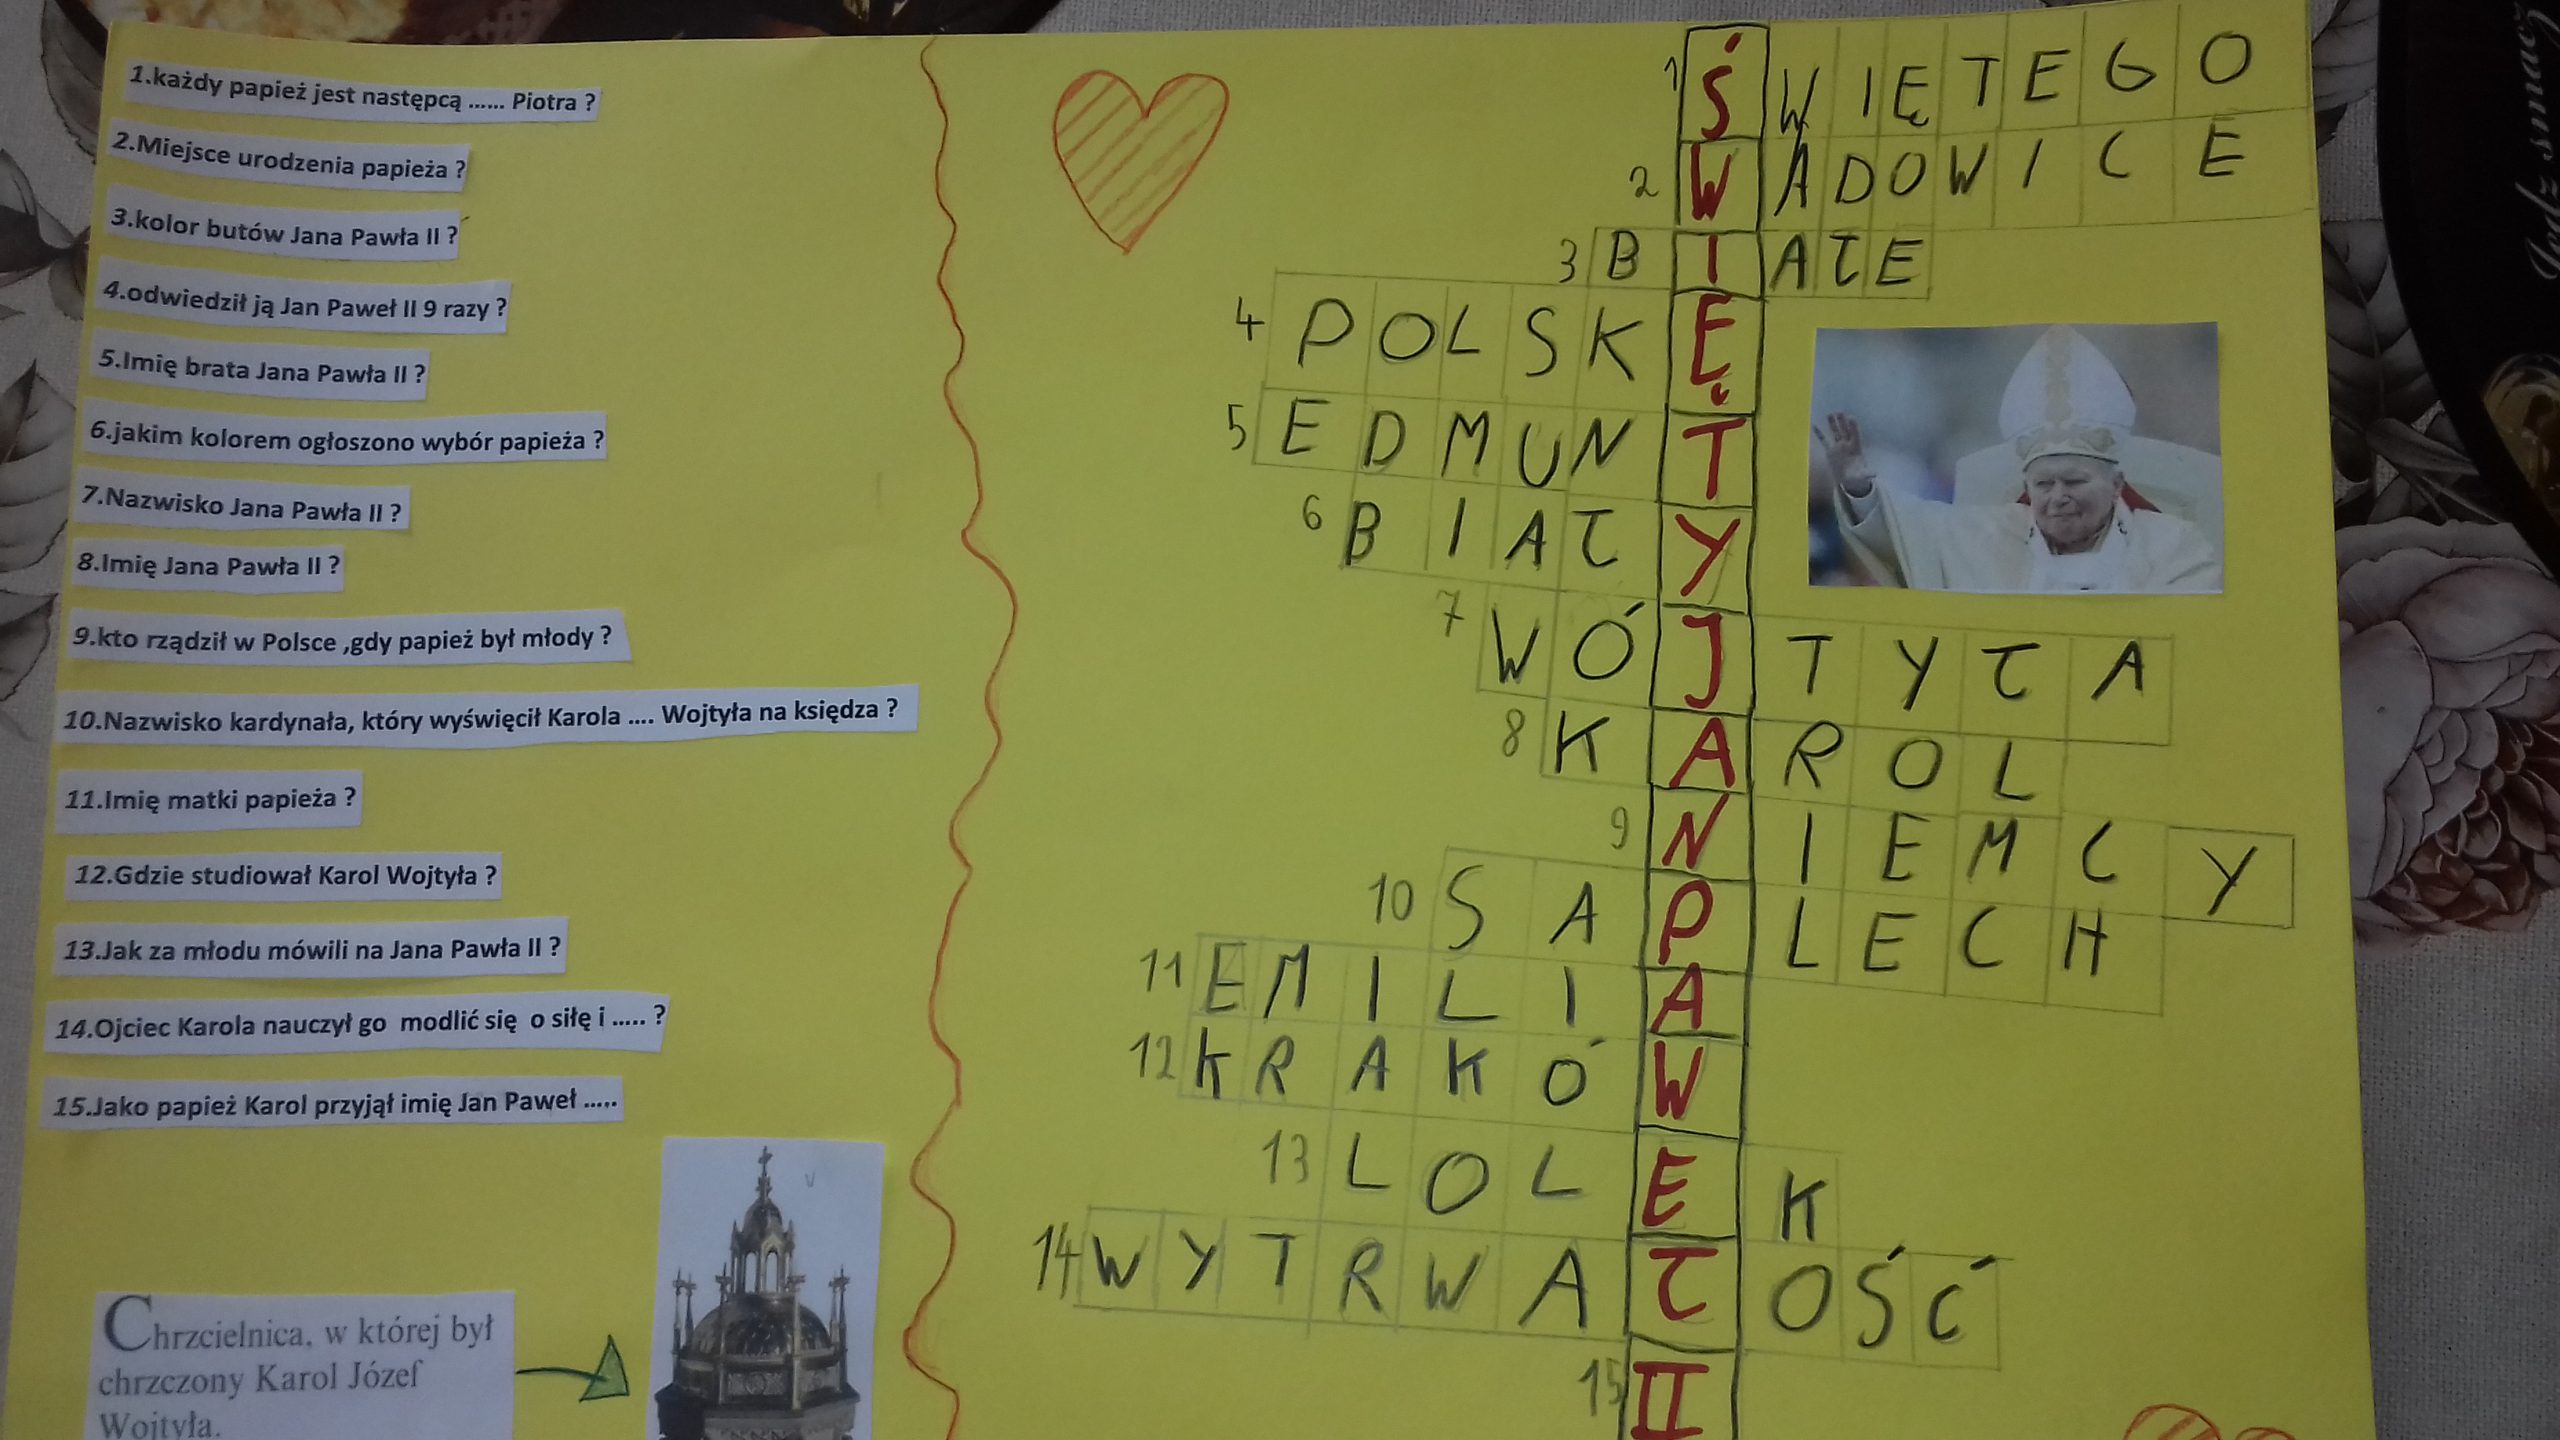 1.każdy papież jest następcą ...... Piotra ?
2.Miejsce urodzenia papieża ?
3.kolor butów Jana Pawła II ?
4.odwiedził ją Jan Paweł II 9 razy ?
5.Imię brata Jana Pawła II ?
6.jakim kolorem ogłoszono wybór papieża ?
7.Nazwisko Jana Pawła II ?
8.Imię Jana Pawła II ?
9.kto rządził w Polsce ,gdy papież był młody ?
10.Nazwisko kardynała, który wyświęcił Karola .... Wojtyła na księdza ?
11.Imię matki papieża ?
12.Gdzie studiował Karol Wojtyła ?
13.Jak za młodu mówili na Jana Pawła II ?
14.Ojciec Karola nauczył go modlić się o siłę i ..... ?
15.Jako papież Karol przyjął imię Jan Paweł .....
Chrzcielnica, w której był
chrzczony Karol Józef
Wojtyła.
1 ŚWIĘTEGO
2 WADOWICE
3 BIAŁE
4 POLSKĘ
5 EDMUNT
6 BIAŁY
7 WÓJTYŁA
8 KAROL
9 NIEMCY
10 SAPLECH
11 EMILIA
12 KRAKÓW
13 LOLEK
14 WYTRWAŁOŚĆ
15 II